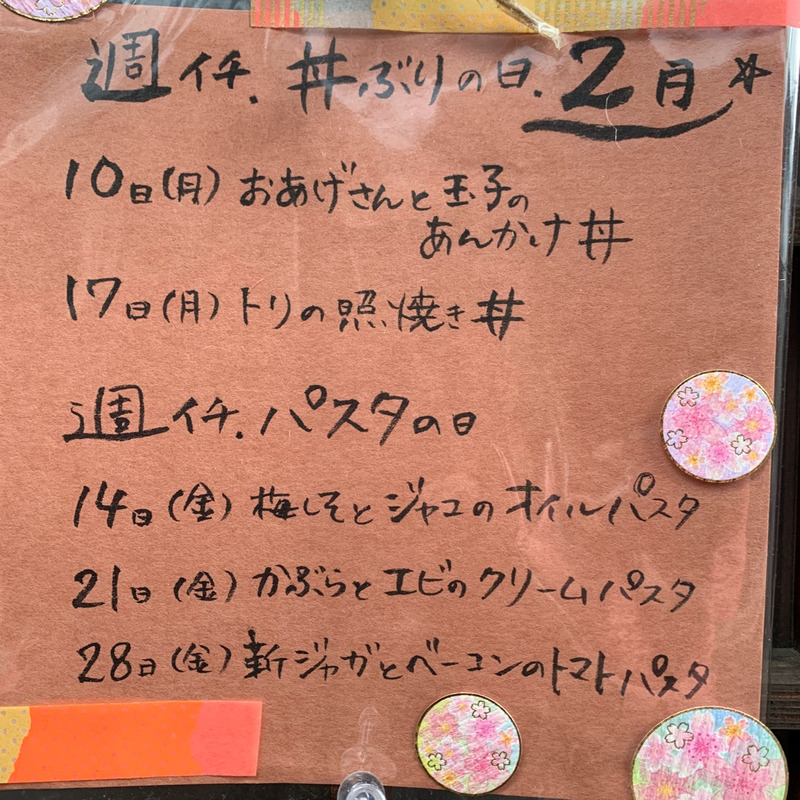 週イチ.丼ぶりの日.2月
10日(月)おあげさんと玉子の
あんかけ丼
17日(月)トリの照焼き丼
週イチ.パスタの日
14日(金)梅しそとジャコのオイルパスタ
21日(金)かぶらとエビのクリームパスタ
28日(金)新ジャガとベーコンのトマトパスタ